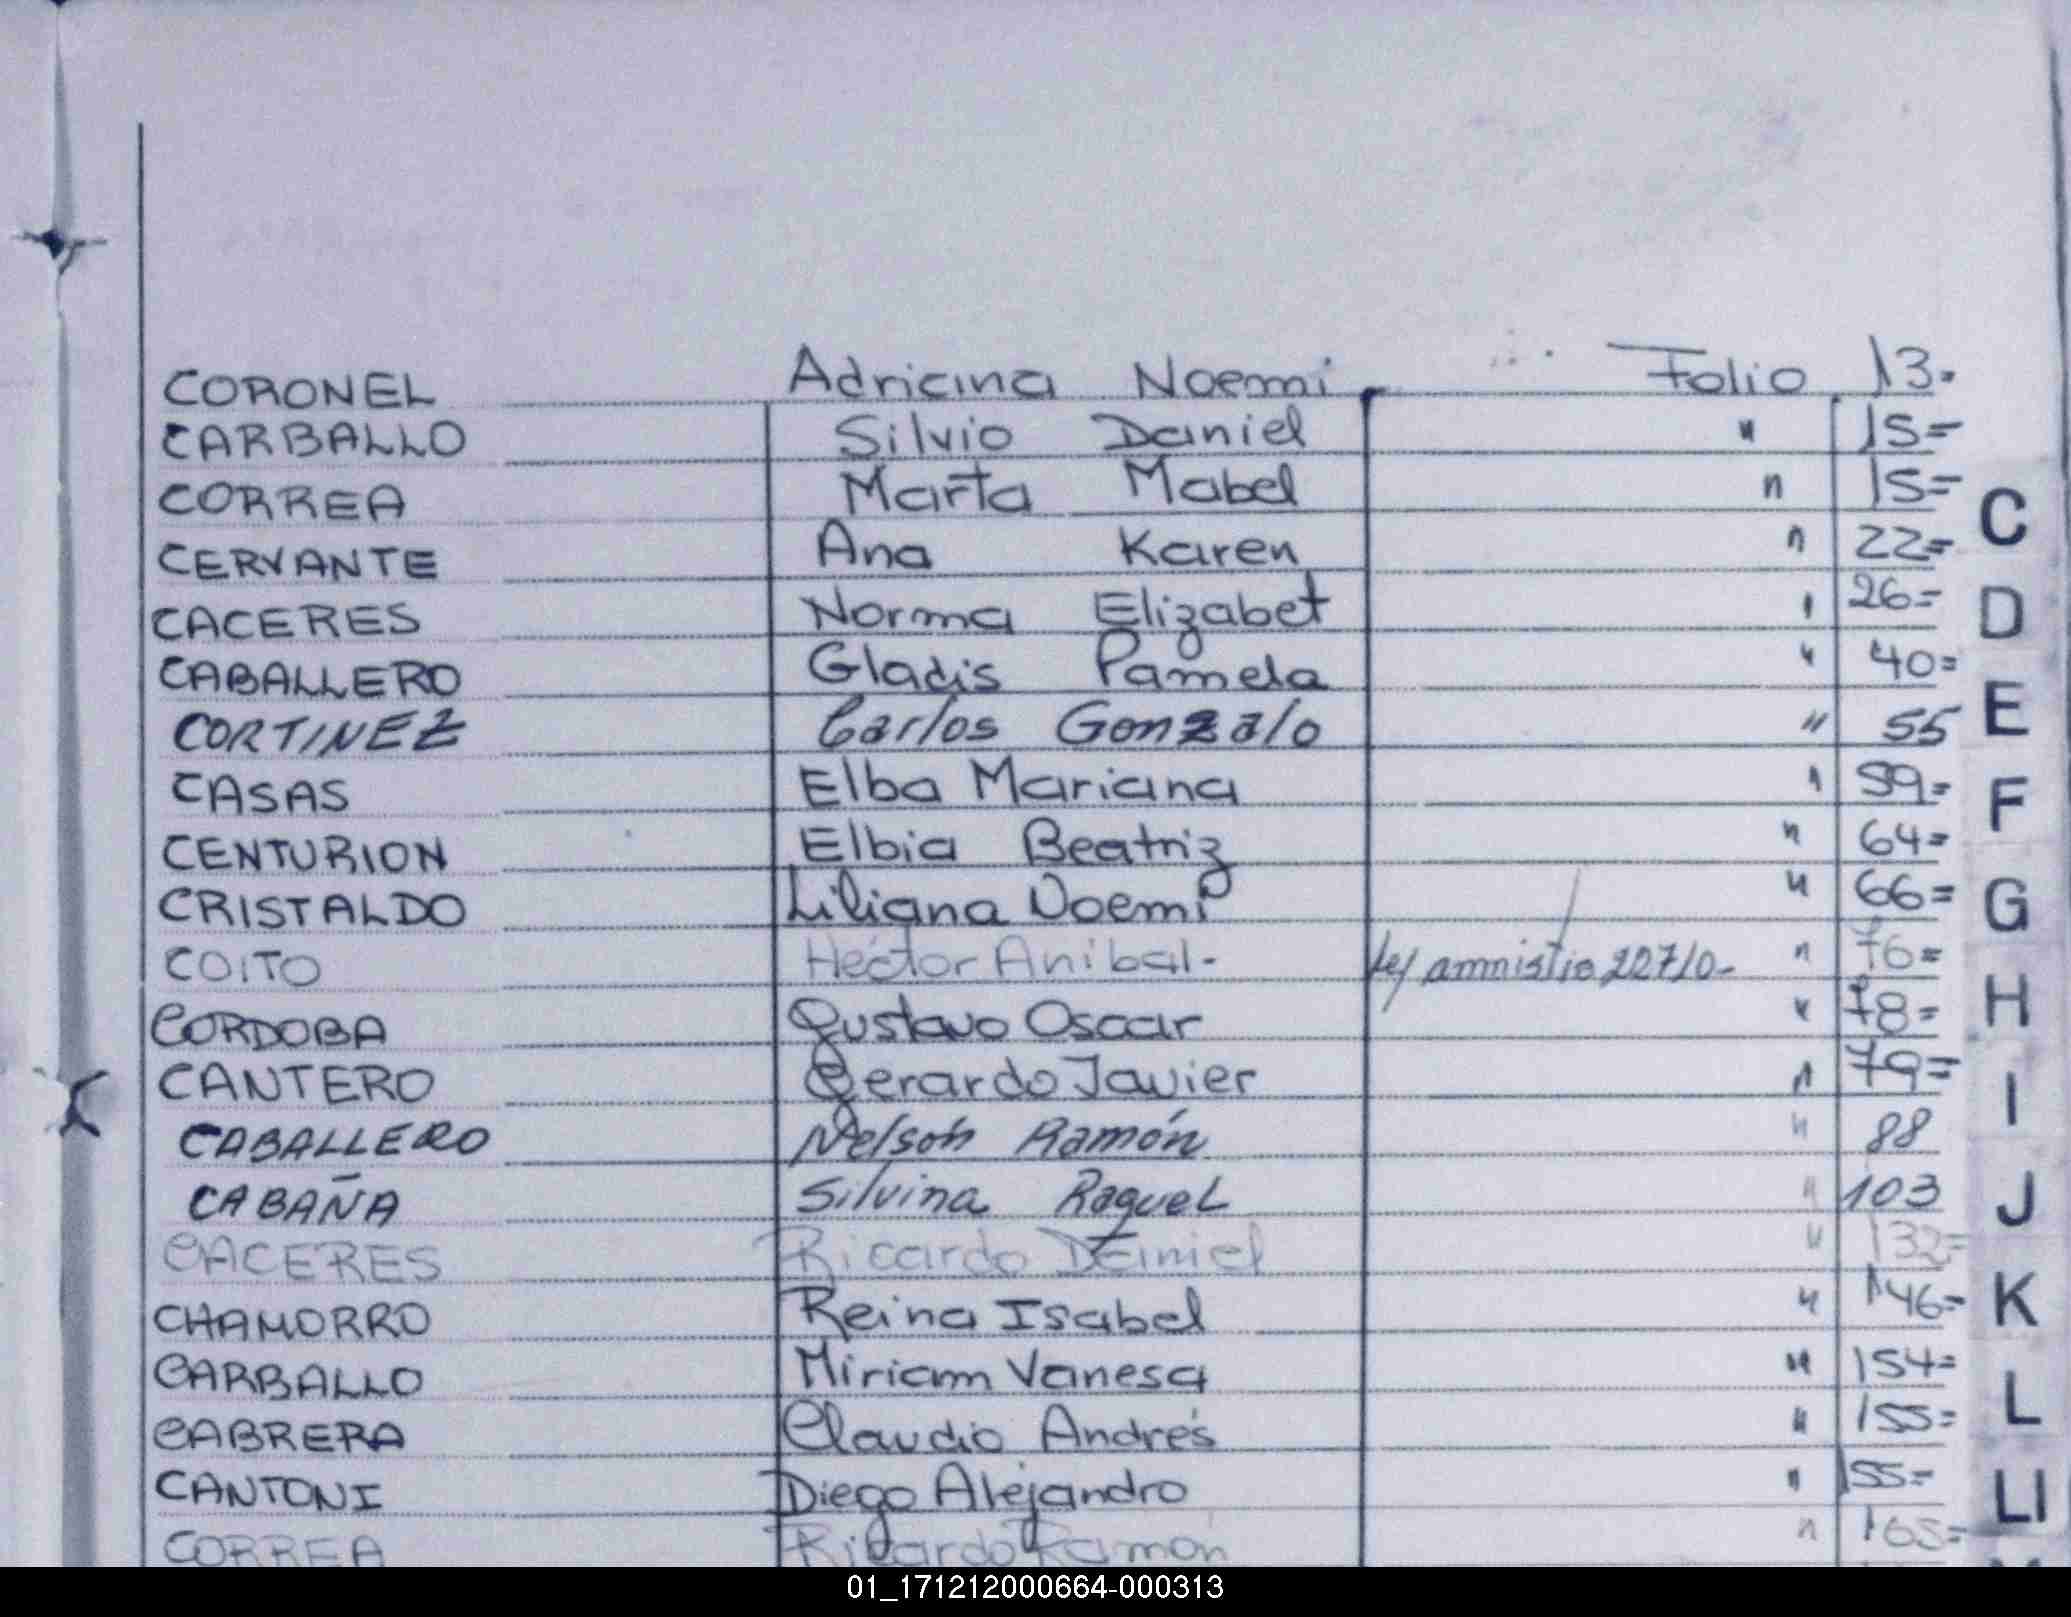 CORONEL Adriana Noemi Folio 13.
CARBALLO Silvio Daniel " 15=
CORREA Marta Mabel " 15=
CERVANTE Ana Karen " 22=
CACERES Norma Elizabet " 26=
CABALLERO Gladis Pamela " 40=
CORTINEZ Carlos Gonzalo " 55
CASAS Elba Mariana " 59=
CENTURION Elbia Beatriz " 64=
CRISTALDO Liliana Noemi " 66=
COITO Hector Anibal- ley amnistia " 76=
CORDOBA Gustavo Oscar " 78=
CANTERO Gerardo Javier " 79=
CABALLERO Nelson Ramón " 88
CABAÑA Silvina Raquel " 103
CACERES Ricardo Daniel " 132=
CHAMORRO Reina Isabel " 146=
CARBALLO Miriam Vanesa " 154=
CABRERA Claudio Andrés " 155=
CANTONI Diego Alejandro " 155=
CORREA Ricardo Ramón " 165=
C
D
E
F
G
H
I
J
K
L
LI
01_171212000664-000313